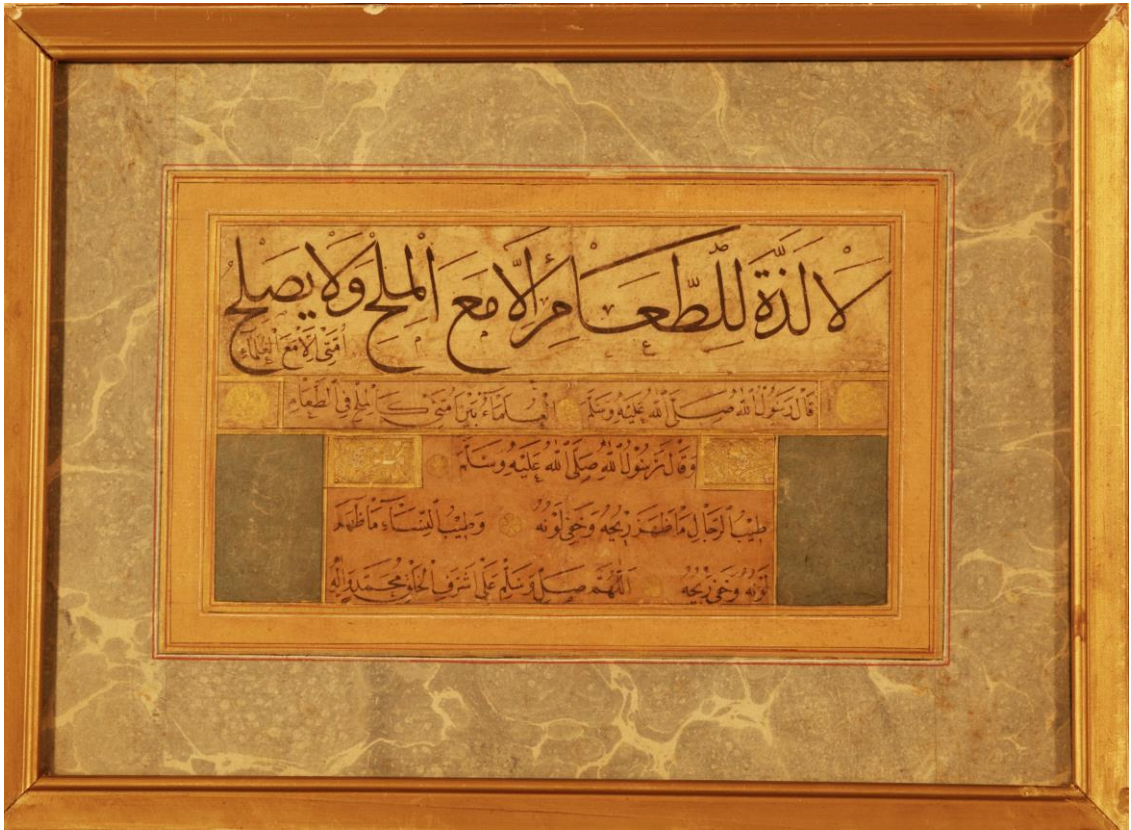 لا لذة للطعام إلا مع الملح ولا يصلح
أمتي إلا مع العلماء
قال رسول الله صلى الله عليه وسلم العلماء بين أمتي كالملح في الطعام
وقال رسول الله صلى الله عليه وسلم
طيب الرجال ما ظهر ريحه وخفي لونه وطيب النساء ما ظهر
لونه وخفي ريحه اللهم صل وسلم على شرف الخلق محمد وآله